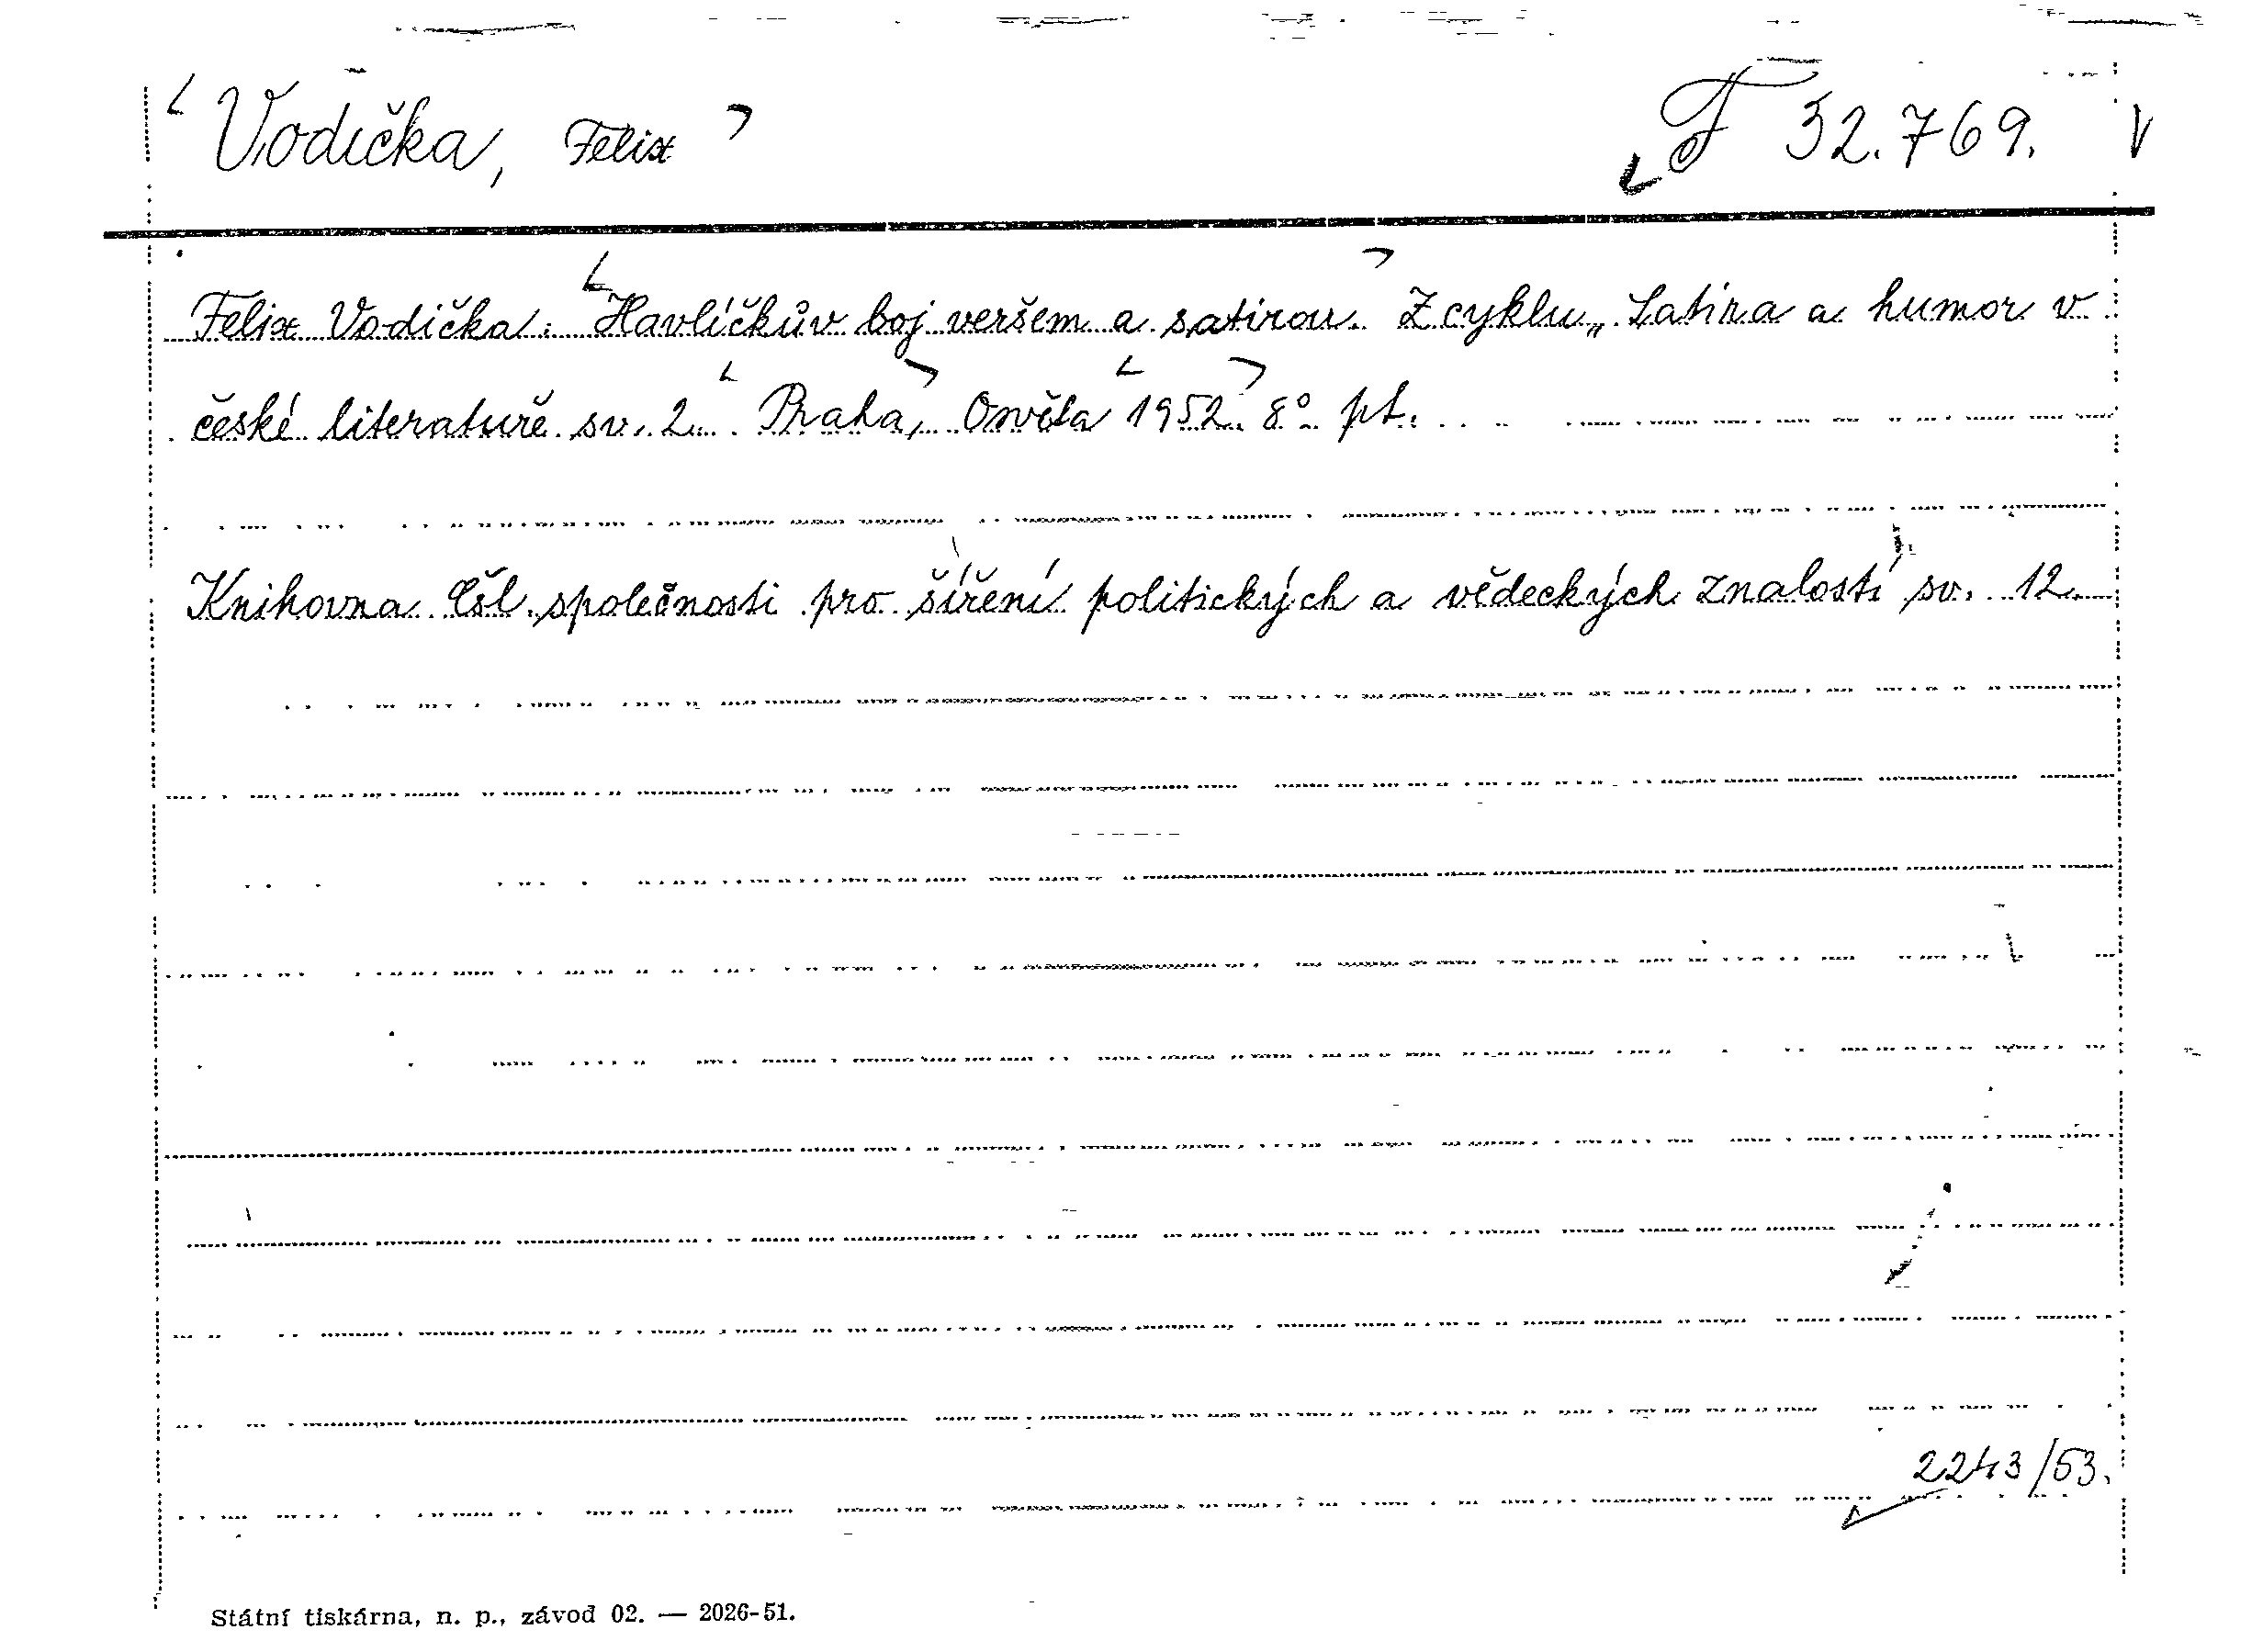 Vodička, Felix F 32.769. V
Felix Vodička: Havlíčkův boj veršem a satirou. Z cyklu „Satira a humor v
české literatuře sv. 2. Praha, Osvěta 1952. 8° pt.
Knihovna Čsl. společnosti pro šíření politických a vědeckých znalostí sv. 12.
2243/53.
Státní tiskárna, n. p., závod 02. — 2026-51.